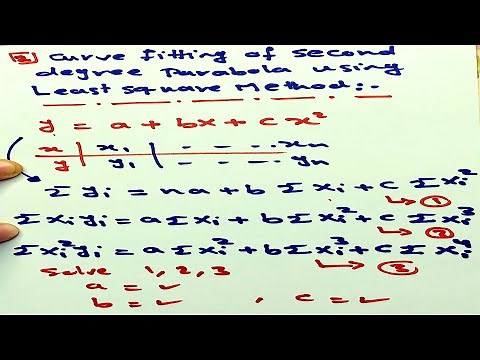 [2] Curve fitting of second
degree Parabola using
Least square Method:-
y = a + bx + cx²
x | x₁ | - - - .. xn
y | y₁ | - - - .. yn
Σyᵢ = na + bΣxᵢ + cΣxᵢ²
→ ①
Σxᵢyᵢ = aΣxᵢ + bΣxᵢ² + cΣxᵢ³
→ ②
Σxᵢ²yᵢ = aΣxᵢ² + bΣxᵢ³ + cΣxᵢ⁴
→ ③
Solve 1, 2, 3
a = ✓
b = ✓ , c = ✓